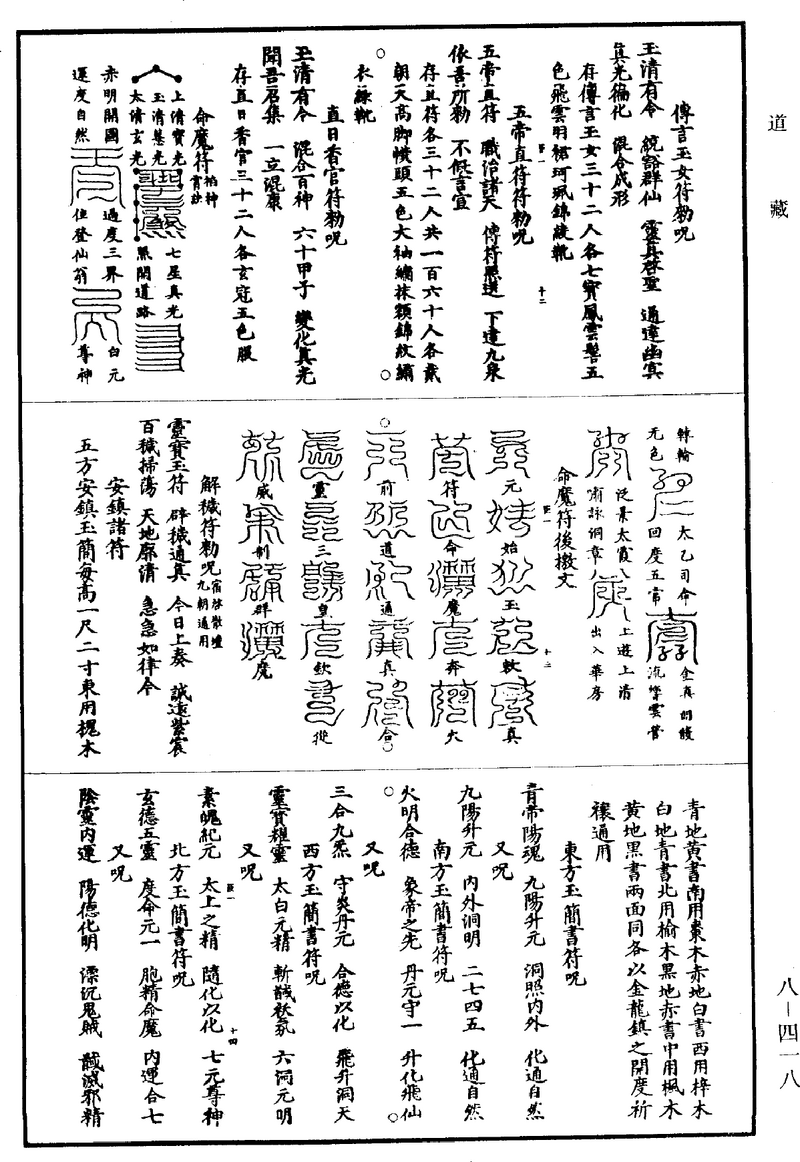 道藏
傳言玉女符勑呪
玉清有令 統豁群仙 靈真啓聖 通達幽冥
真光徧化 混合成形
存傳言玉女三十二人各七寶鳳雲髻五
色飛雲羽裙珂珮錦綾靴
五帝直符符勑呪
五帝直符 職治諸天 傳符照送 下達九泉
依吾所勑 不伍言宣
存直符各三十二人共一百六十人各戴
朝天高脚幞頭五色大袖繡抹額錦紋繡
衣綠靴
直日香官符勑呪
玉清有令 混合百神 六十甲子 變化真光
聞吾召集 一立混康
存直日香官三十二人各玄冠五色服
命魔符
上清寶光
玉清慧光
太清玄光
七星真光
照開道路
赤明開圖
運度自然
過度三界
位登仙翁
白元
尊神
棘輪
元色
太乙司命
回度五常
金真朗馥
流響雲營
泛景太霞
嘯詠洞章
上遊上清
出入華房
命魔符後檄文
元始玉敕真
符命魔奔大
前道通真合
靈三皇欽從
威制群魔
解穢符勑呪宿啓散壇九朝通用
靈寶玉符 辟穢通真 今日上奏 誠達紫宸
百穢掃蕩 天地廓清 急急如律令
安鎮諸符
五方安鎮玉簡每高一尺二寸東用槐木
青地黃書南用棗木赤地白書西用梓木
白地青書北用榆木黑地赤書中用楓木
黃地黑書兩面同各以金龍鎮之開度祈
禳通用
東方玉簡書符呪
青帝陽魂 九陽升元 洞照內外 化通自然
又呪
九陽升元 內外洞明 二七四五 化通自然
南方玉簡書符呪
火明合德 象帝之先 丹元守一 升化飛仙
又呪
三合九炁 守炎丹元 合德以化 飛升洞天
西方玉簡書符呪
靈寶耀靈 太白元精 斬馘祅氛 六洞元明
又呪
素魄紀元 太上之精 隨化以化 七元尊神
北方玉簡書符呪
玄德五靈 度命元一 胞精命魔 內運合七
又呪
陰靈內運 陽德化明 漂沉鬼賊 馘滅邪精
八-四一八